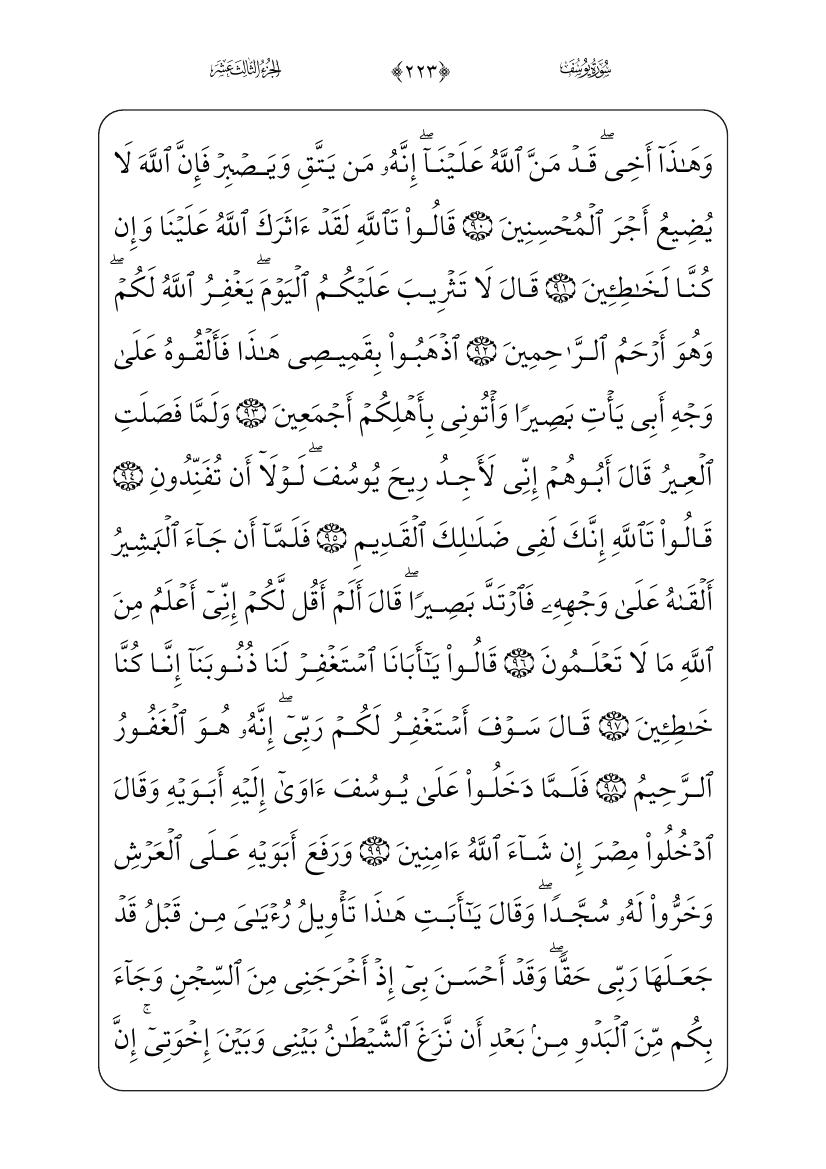 سُورَةُ يُوسُفَ ﴿٢٢٣﴾ الجُزْءُ الثَّالِثَ عَشَرَ
وَهَٰذَآ أَخِيۖ قَدۡ مَنَّ ٱللَّهُ عَلَيۡنَآۖ إِنَّهُۥ مَن يَتَّقِ وَيَصۡبِرۡ فَإِنَّ ٱللَّهَ لَا
يُضِيعُ أَجۡرَ ٱلۡمُحۡسِنِينَ ٩٠ قَالُواْ تَٱللَّهِ لَقَدۡ ءَاثَرَكَ ٱللَّهُ عَلَيۡنَا وَإِن
كُنَّا لَخَٰطِـِٔينَ ٩١ قَالَ لَا تَثۡرِيبَ عَلَيۡكُمُ ٱلۡيَوۡمَۖ يَغۡفِرُ ٱللَّهُ لَكُمۡۖ
وَهُوَ أَرۡحَمُ ٱلرَّٰحِمِينَ ٩٢ ٱذۡهَبُواْ بِقَمِيصِي هَٰذَا فَأَلۡقُوهُ عَلَىٰ
وَجۡهِ أَبِي يَأۡتِ بَصِيرٗا وَأۡتُونِي بِأَهۡلِكُمۡ أَجۡمَعِينَ ٩٣ وَلَمَّا فَصَلَتِ
ٱلۡعِيرُ قَالَ أَبُوهُمۡ إِنِّي لَأَجِدُ رِيحَ يُوسُفَۖ لَوۡلَآ أَن تُفَنِّدُونِ ٩٤
قَالُواْ تَٱللَّهِ إِنَّكَ لَفِي ضَلَٰلِكَ ٱلۡقَدِيمِ ٩٥ فَلَمَّآ أَن جَآءَ ٱلۡبَشِيرُ
أَلۡقَىٰهُ عَلَىٰ وَجۡهِهِۦ فَٱرۡتَدَّ بَصِيرٗاۖ قَالَ أَلَمۡ أَقُل لَّكُمۡ إِنِّيٓ أَعۡلَمُ مِنَ
ٱللَّهِ مَا لَا تَعۡلَمُونَ ٩٦ قَالُواْ يَٰٓأَبَانَا ٱسۡتَغۡفِرۡ لَنَا ذُنُوبَنَآ إِنَّا كُنَّا
خَٰطِـِٔينَ ٩٧ قَالَ سَوۡفَ أَسۡتَغۡفِرُ لَكُمۡ رَبِّيٓۖ إِنَّهُۥ هُوَ ٱلۡغَفُورُ
ٱلرَّحِيمُ ٩٨ فَلَمَّا دَخَلُواْ عَلَىٰ يُوسُفَ ءَاوَىٰٓ إِلَيۡهِ أَبَوَيۡهِ وَقَالَ
ٱدۡخُلُواْ مِصۡرَ إِن شَآءَ ٱللَّهُ ءَامِنِينَ ٩٩ وَرَفَعَ أَبَوَيۡهِ عَلَى ٱلۡعَرۡشِ
وَخَرُّواْ لَهُۥ سُجَّدٗاۖ وَقَالَ يَٰٓأَبَتِ هَٰذَا تَأۡوِيلُ رُءۡيَٰيَ مِن قَبۡلُ قَدۡ
جَعَلَهَا رَبِّي حَقّٗاۖ وَقَدۡ أَحۡسَنَ بِيٓ إِذۡ أَخۡرَجَنِي مِنَ ٱلسِّجۡنِ وَجَآءَ
بِكُم مِّنَ ٱلۡبَدۡوِ مِنۢ بَعۡدِ أَن نَّزَغَ ٱلشَّيۡطَٰنُ بَيۡنِي وَبَيۡنَ إِخۡوَتِيٓۚ إِنَّ